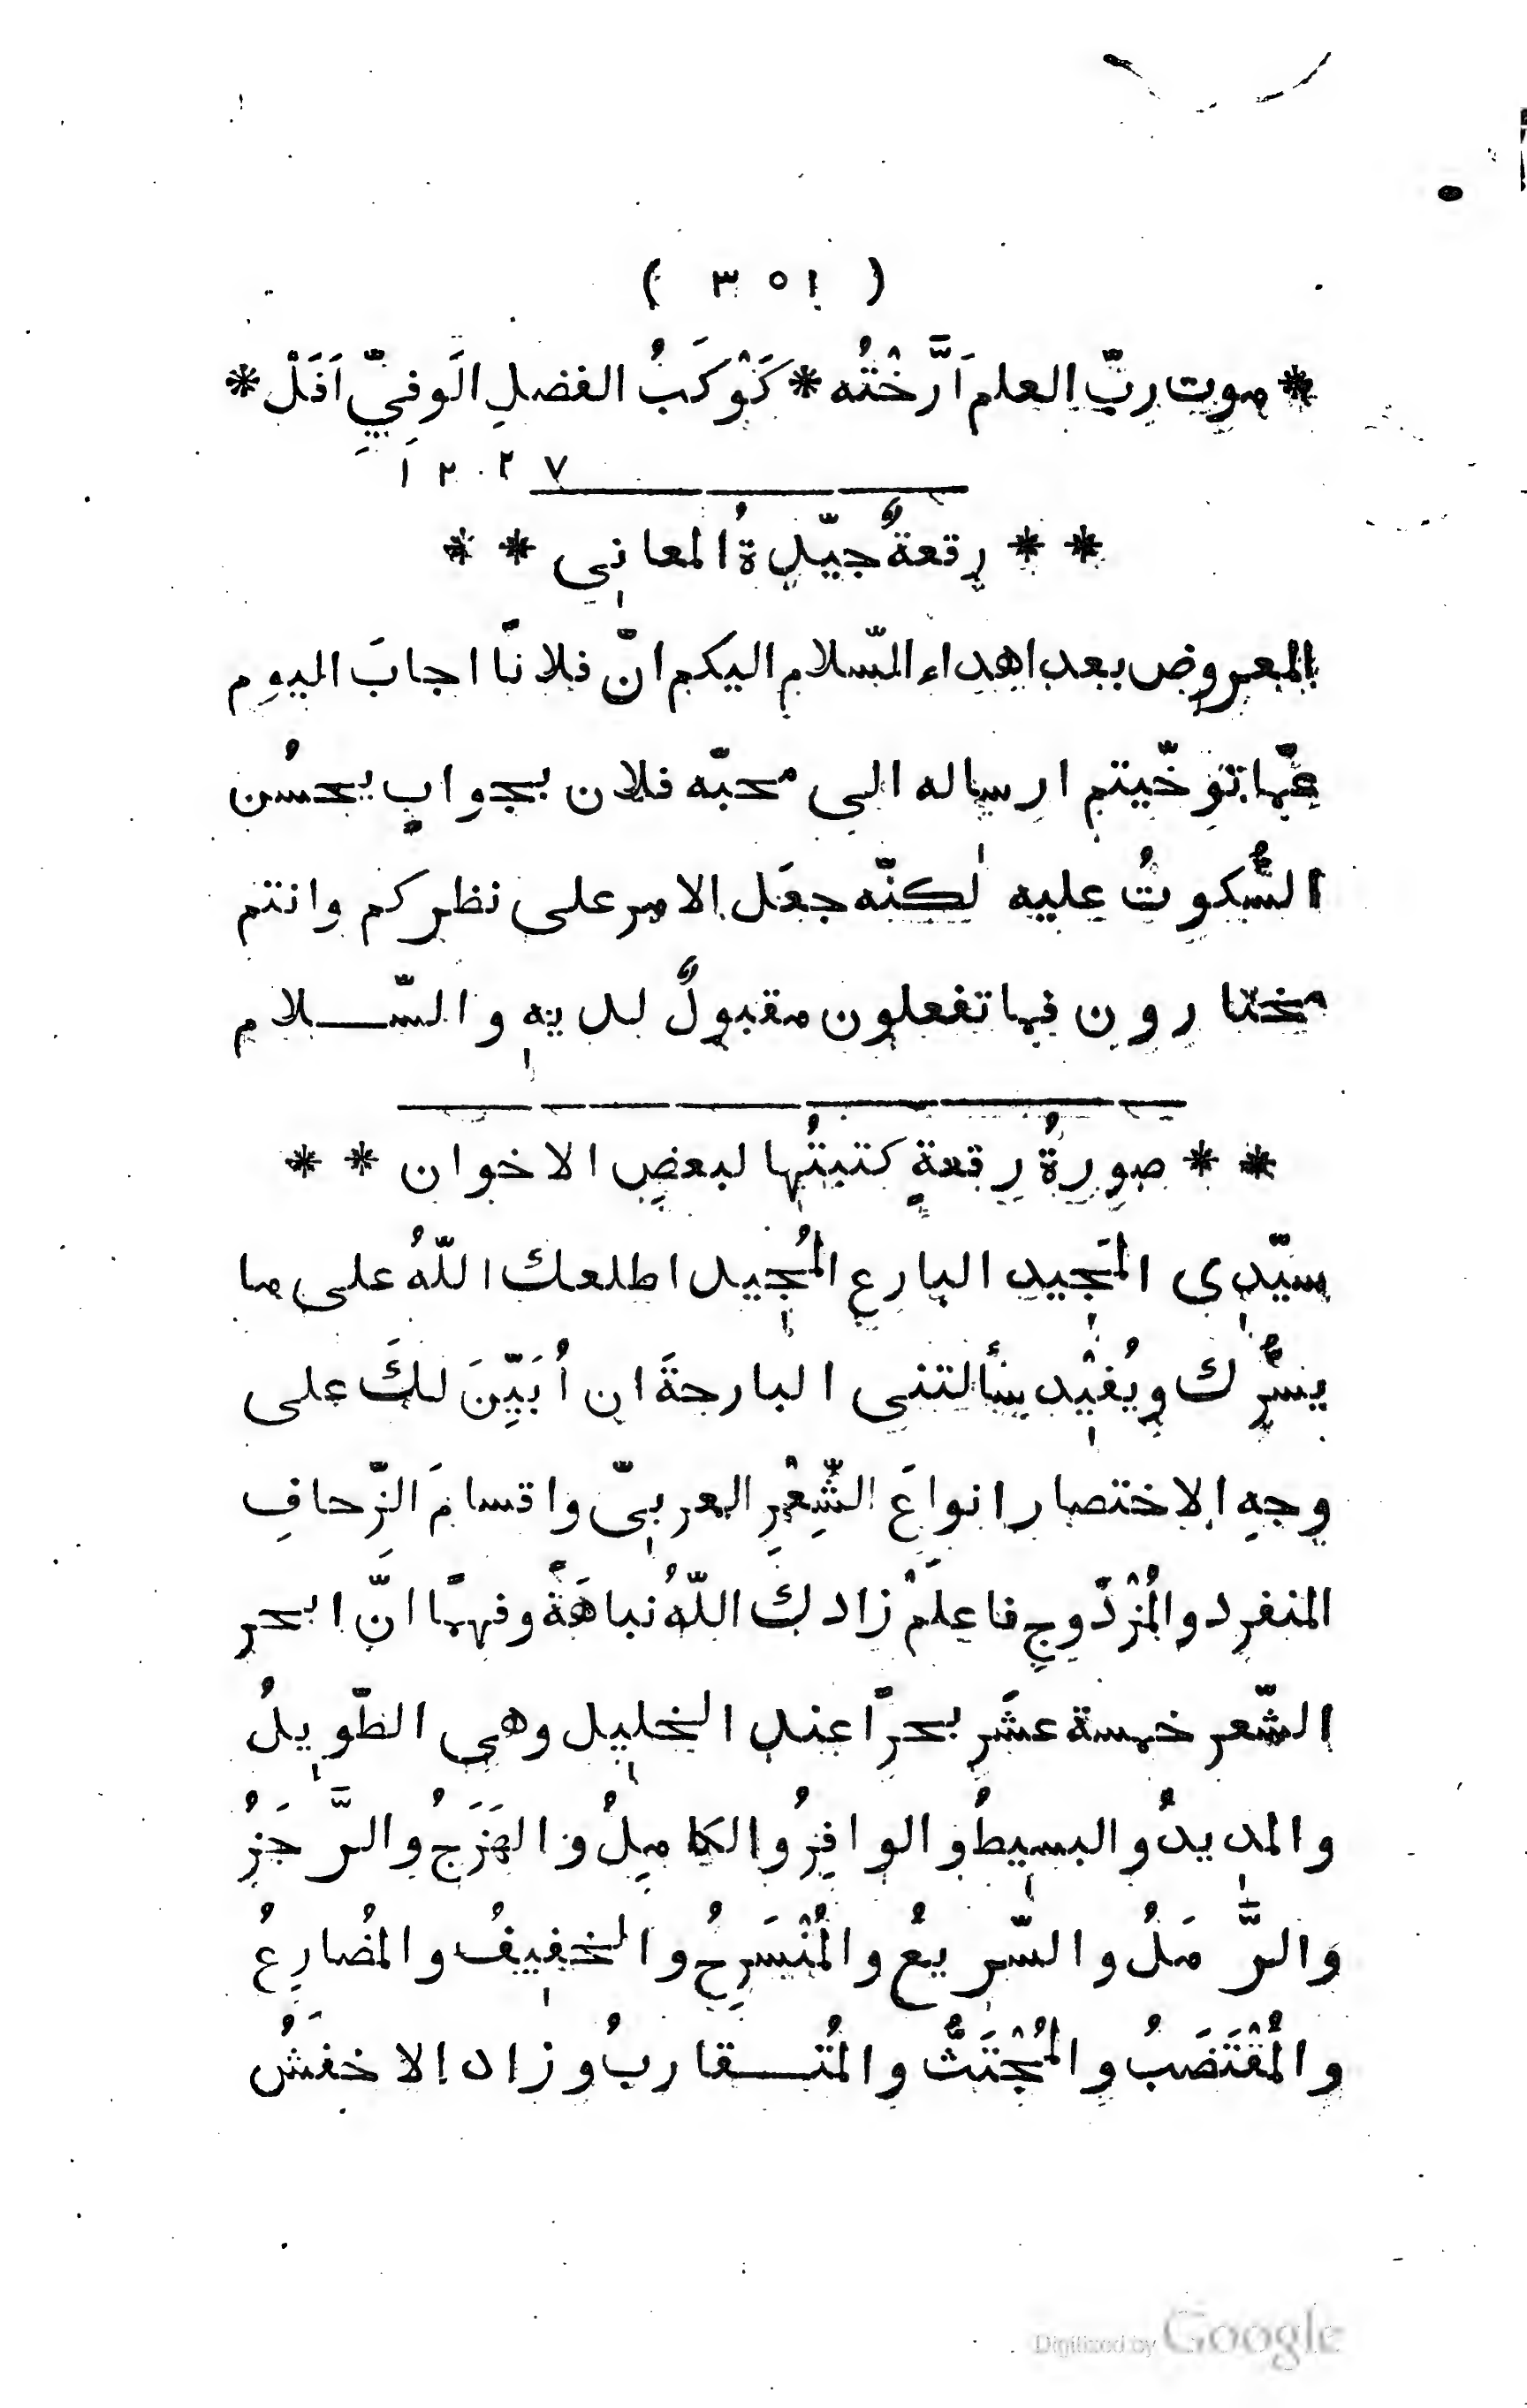 ( ٣٥١ )
* موت ربّ العلم اَرَّخْتُه * كَوْكَبُ الفضلِ الَوفيِّ اَفَلْ *
١٢٠٢٧
* * رقعةٌ جيّدةُ المعاني * *
المعروض بعد اهداء السّلام اليكم انّ فلانًا اجابَ اليوم
عمّا توخّيتم ارساله الى محبّه فلان بجوابٍ يحسُن
السُّكوتُ عليه لٰكنّه جعَل الامر على نظركم وانتم
مختارون فما تفعلون مقبولٌ لديه والسّــلام
* * صورةُ رقعةٍ كتبتُها لبعضِ الاخوان * *
سيّدي المَجيد البارع المُجيد اطلعك اللّهُ على ما
يسُرُّك ويُفيْد سألتني البارحةَ ان اُبَيِّنَ لكَ على
وجه الاختصار انواعَ الشِّعْرِ العربيّ واقسامَ الزّحافِ
المنفرد والمُزْدَوجِ فاعلَمْ زادك اللّهُ نباهَةً وفهمًا انّ ابحر
الشّعر خمسة عشَر بحرًا عند الخليل وهي الطّويلُ
والمديدُ والبسيطُ والوافرُ والكاملُ والهَزَجُ والرَّجَزُ
وَالرَّمَلُ والسّريعُ والمُنْسَرِحُ والخفيفُ والمُضارِعُ
والمُقْتَضَبُ والمُجْتَثُّ والمُتــقاربُ وزاد الاخفَشُ
Digitized by Google